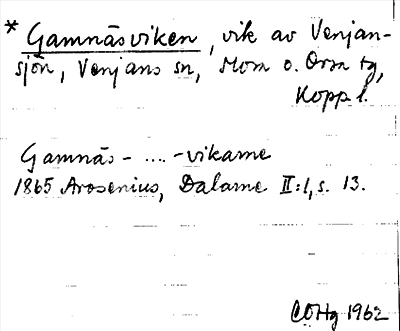 * Gamnäsviken, vik av Venjan-
sjön, Venjans sn, Mora o. Orsa tg,
Kopp. l.
Gamnäs- .... -vikarne
1865 Arosenius, Dalarne II:1, s. 13.
COHg 1962